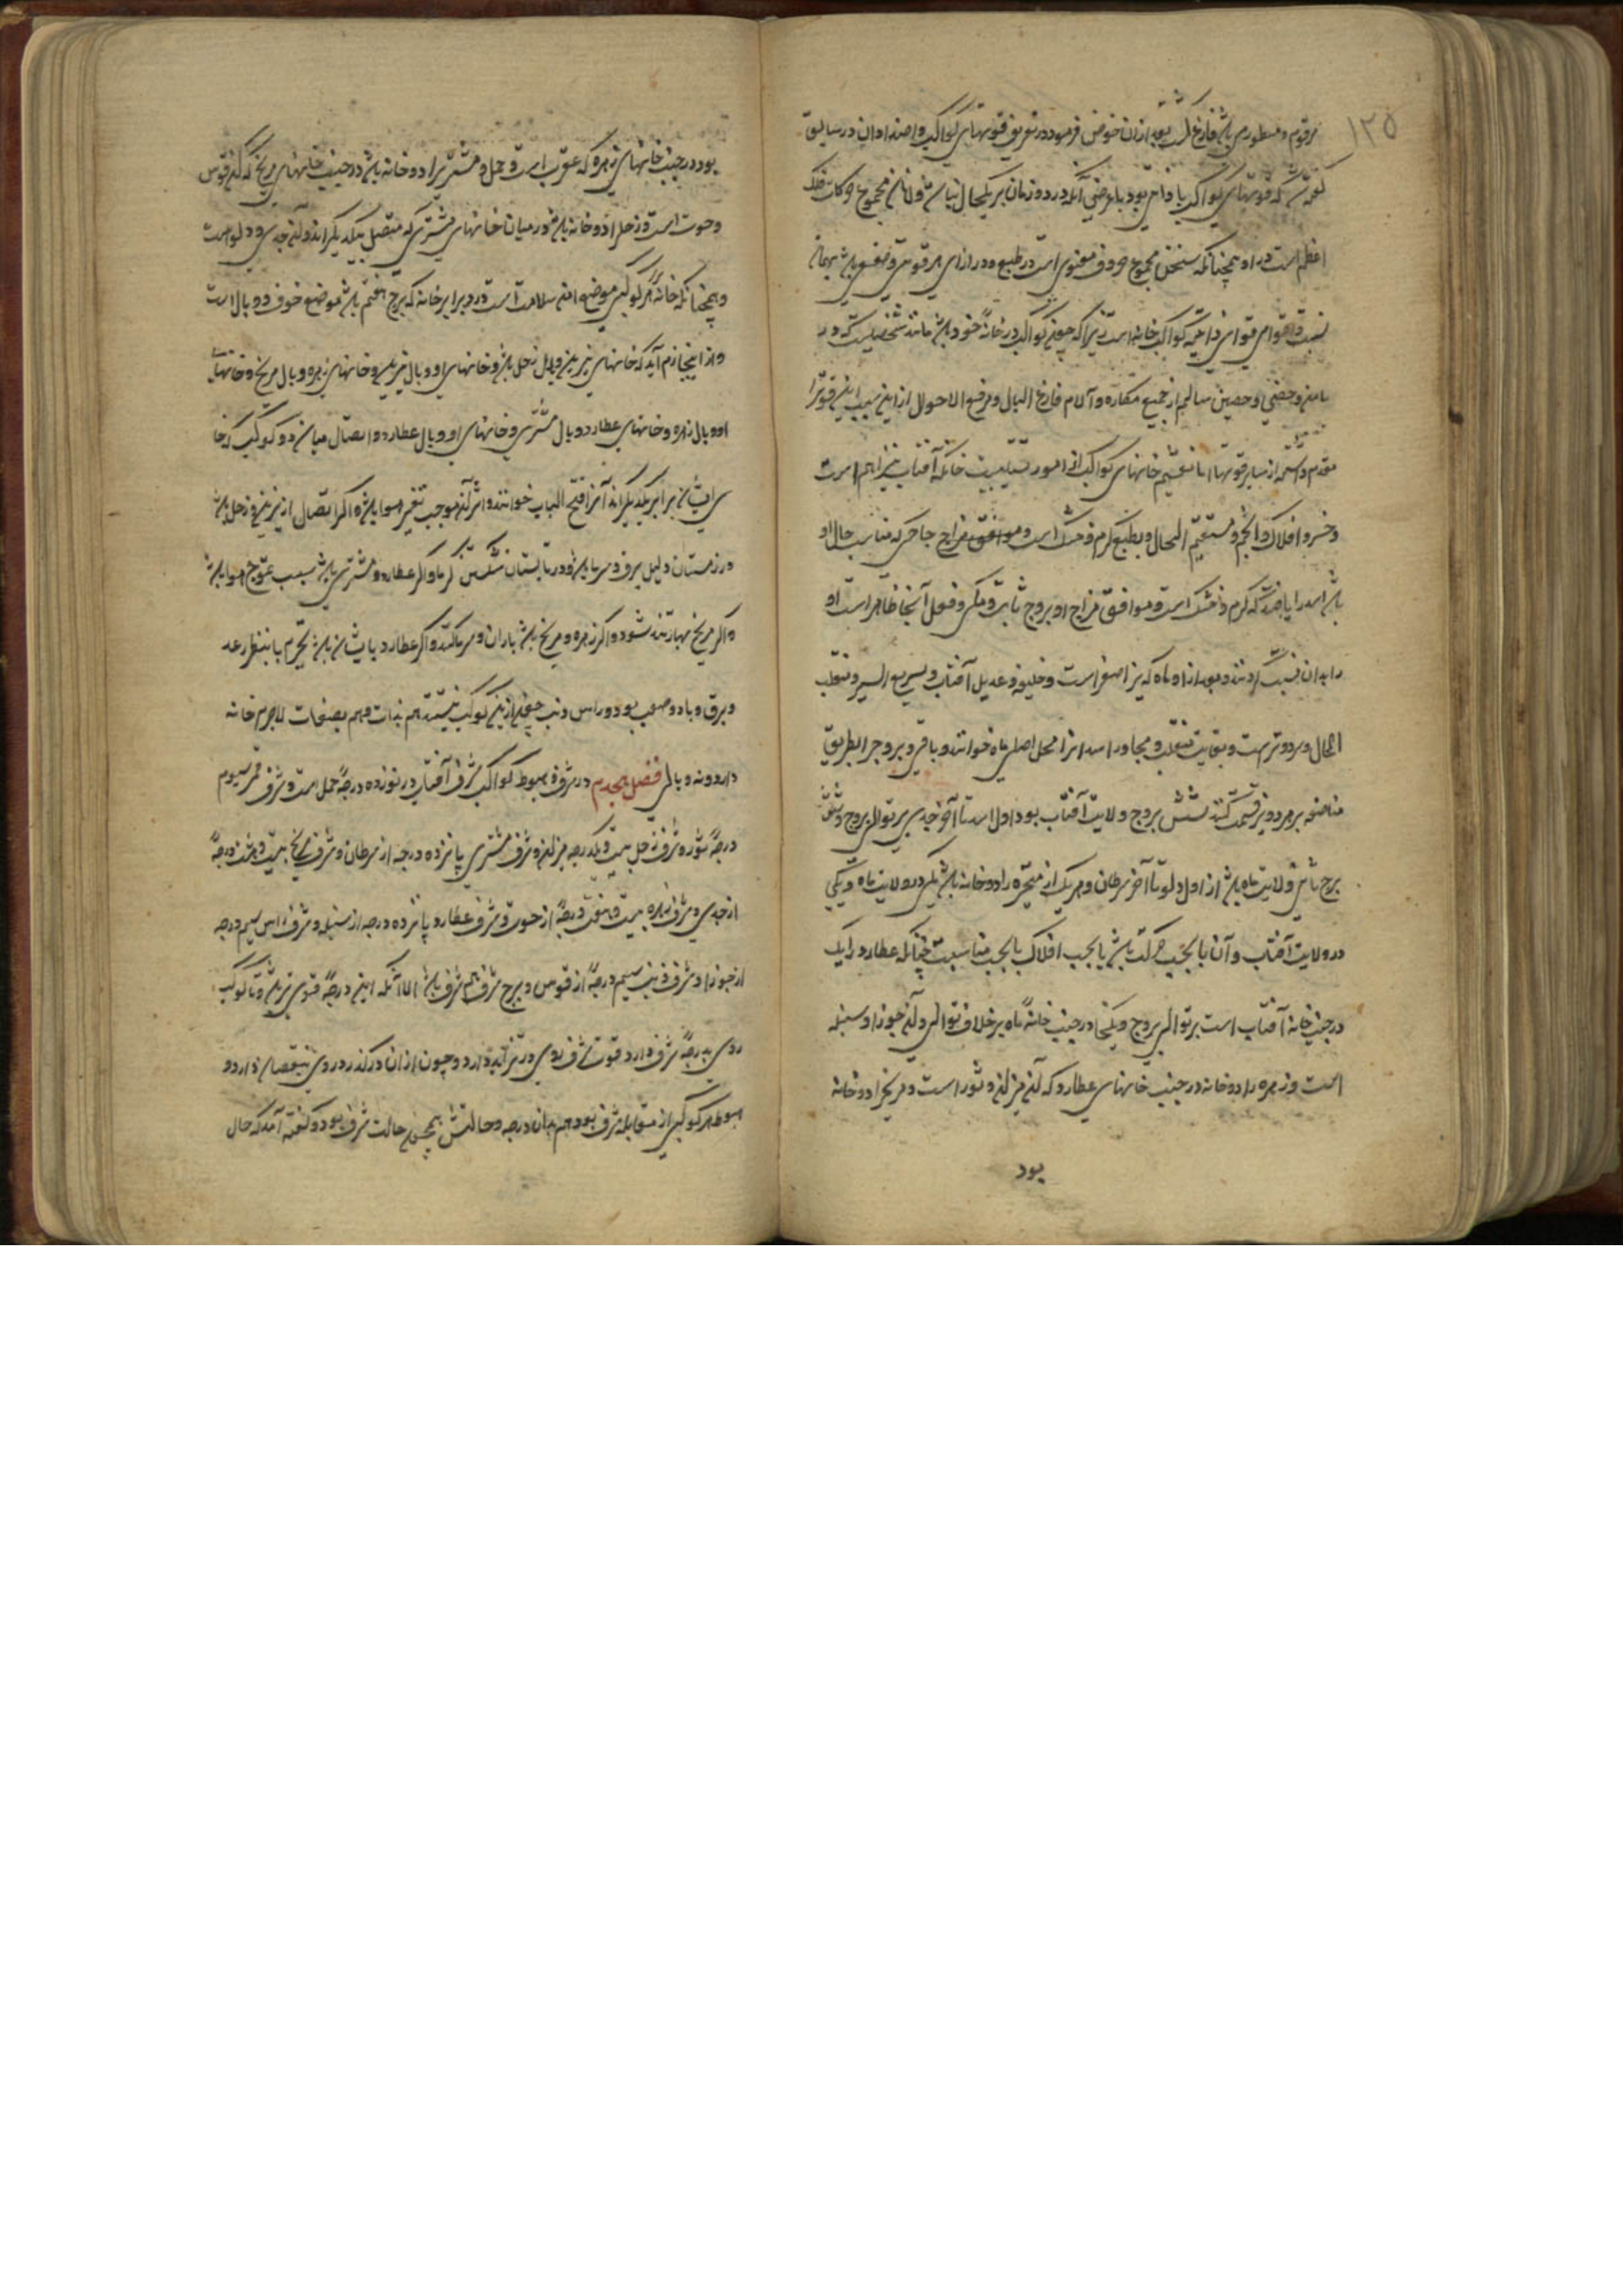 ۱۲۵
مرقوم و مسطور می باشد فارغ گشت بعد ازان خوض فرمود در تعریف قوتهای کواکب و اضداد آن در سابق
گفته شد که قوتهای کواکب یا ذاتی بود یا عرضی آنکه در دو زمان بر یکحال نباشد و لانه مجموع حرکات فلک
اعظم است در او همچنانکه سخن مجموع حروف معنوی است در طبع و در ازای هر قوتی ضعفی باشد بهمان
نسبت قوا قوی قوای ذاتیه کواکب خانه است زیرا که چون کواکب در خانه خود باشد مانند شخصیست که در
مامن و حصنی حصین سالم از جمیع مکاره و آلام فارغ البال و مرفه الاحوال ازین سبب این قوت را
مقدم داشته از سایر قوتها اما تقسیم خانهای کواکب از امور تنسیبیت خانکه آفتاب نیر اعظم است
و خسرو افلاک و انجم و مستقیم الحال و بطبع گرم و خشک است و موافق مزاج جاحی که مناسب حال او
باشد اسد را یافتند که گرم و خشک است و موافق مزاج او بروج ثابت و مکی و فعل آنجا ظاهر است او
را بدان نسبت کردند و بعد از او ماه که نیر اصغر است و خلیفه و عدیل آفتاب و سریع السیر و منقلب
الحال و سرد و تر است و بغایت منقلب و مجاور اسد انرا محل اصلی ماه خوانند و باقی بروج را بطریق
مناصفه بر هر دو نیر قسمت کنند شش بروج ولایت آفتاب بود اول اسد تا آخر جدی بر توالی بروج و شش
برج باقی ولایت ماه باشد از اول دلو تا آخر سرطان و هر یک از متحیره را دو خانه باشد یکی در ولایت ماه و یکی
در ولایت آفتاب و آن یا بحسب حرکت باشد یا بحسب افلاک یا بحسب مناسبت چنانکه عطارد را یک
در جنب خانه آفتاب است بر توالی بروج و یکی را در جنب خانه ماه بر خلاف توالی و آن جوزا و سنبله
است و زهره را دو خانه در جنب خانهای عطارد که آن میزان و ثور است و مریخ را دو خانه
بود
بود در جنب خانهای زهره که عقرب است و حمل و مشتری را دو خانه باشد در جنب خانهای مریخ که آن قوس
و حوت است و زحل را دو خانه باشد در میان خانهای مشتری که متصل بیکدیگراند و آن جدی و دلو است
و همچنانکه خانه هر کوکبی موضع امن و سلامت است در و برابر خانه که برج هفتم باشد موضع خوف و وبال است
و از اینجا لازم آید که خانهای نیرین وبال زحل باشد و خانهای او وبال نیرین و خانهای زهره وبال مریخ و خانهای
او وبال زهره و خانهای عطارد وبال مشتری و خانهای او وبال عطارد و اتصال میان دو کوکب که خا
ی ایشان برابر یکدیگراند آنرا فتح الباب خوانند و اثر آن موجب تغیر هوا باشد اگر اتصال از نیرین و زحل باشد
در زمستان دلیل برف و سرما باشد و در تابستان شکستن گرما و اگر عطارد و مشتری باشد سبب تموج هوا باشد
و اگر مریخ بهار تند شود و اگر زهره و مریخ باشد باران و سرما کند و اگر عطارد با ایشان باشد تحرم یا بنظر رعد
و برق و باد و صعب بود و راس و ذنب چون ازین کواکب نیستند هم بذات و هم بصفات لاجرم خانه
دارد و نه وبالی فصل هجدهم در شرف و هبوط کواکب شرف آفتاب در نوزده درجه حمل است و شرف قمر سیوم
درجه ثور و شرف زحل بیست و یکدرجه میزان و شرف مشتری پانزده درجه از سرطان و شرف مریخ بیست و هشت درجه
از جدی و شرف زهره بیست و هفت درجه از حوت و شرف عطارد پانزده درجه از سنبله و شرف راس سیم درجه
از جوزا و شرف ذنب سیم درجه از قوس و برج شرف هم شرف باشد الا آنکه این درجه قوی تر باشد و تا کوکب
روی بدرجه شرف دارد قوت شرف روی در تزاید دارد و چون ازان درگذرد روی بنقصان دارد و
هبوط هر کوکبی از مقابله شرف بود هم بدان درجه و حالتش همچون حالت شرف بود و گفته آمد که حال